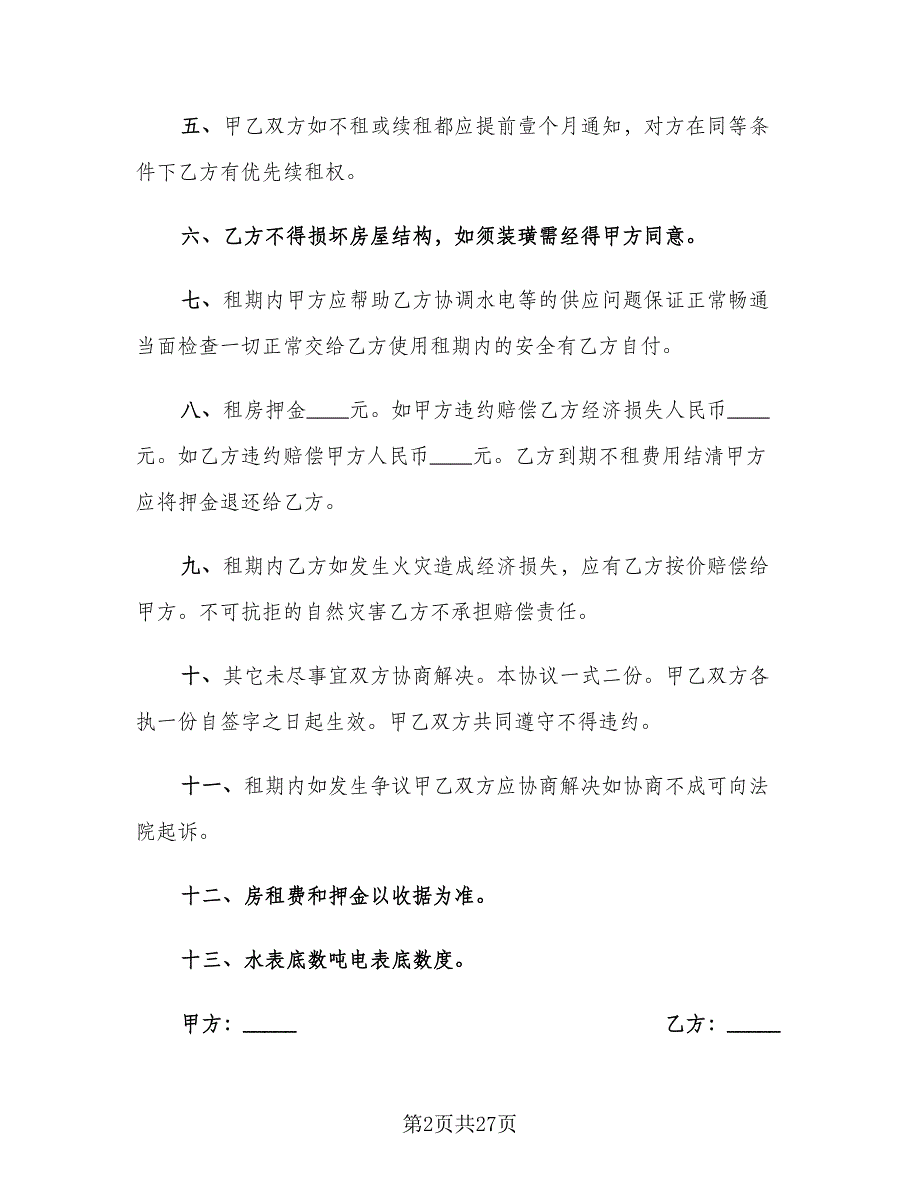 五、甲乙双方如不租或续租都应提前壹个月通知，对方在同等条
件下乙方有优先续租权。
六、乙方不得损坏房屋结构，如须装璜需经得甲方同意。
七、租期内甲方应帮助乙方协调水电等的供应问题保证正常畅通
当面检查一切正常交给乙方使用租期内的安全有乙方自付。
八、租房押金____元。如甲方违约赔偿乙方经济损失人民币____
元。如乙方违约赔偿甲方人民币____元。乙方到期不租费用结清甲方
应将押金退还给乙方。
九、租期内乙方如发生火灾造成经济损失，应有乙方按价赔偿给
甲方。不可抗拒的自然灾害乙方不承担赔偿责任。
十、其它未尽事宜双方协商解决。本协议一式二份。甲乙双方各
执一份自签字之日起生效。甲乙双方共同遵守不得违约。
十一、租期内如发生争议甲乙双方应协商解决如协商不成可向法
院起诉。
十二、房租费和押金以收据为准。
十三、水表底数吨电表底数度。
甲方：_____ 乙方：_____
第2页共27页